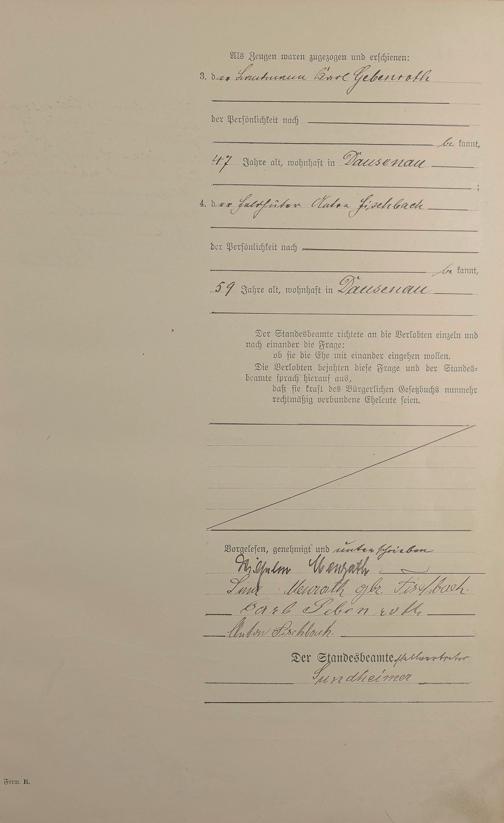 Als Zeugen waren zugezogen und erschienen:
3. der Karl
der Persönlichkeit nach
be kannt,
47 Jahre alt, wohnhaft in Dausenau
;
4. der Feldhüter Anton Fischbach
der Persönlichkeit nach
be kannt,
59 Jahre alt, wohnhaft in Dausenau
Der Standesbeamte richtete an die Verlobten einzeln und
nach einander die Frage:
ob sie die Ehe mit einander eingehen wollen.
Die Verlobten bejahten diese Frage und der Standes=
beamte sprach hierauf aus,
daß sie kraft des Bürgerlichen Gesetzbuchs nunmehr
rechtmäßig verbundene Eheleute seien.
Vorgelesen, genehmigt und unterschrieben
Wilhelm
geb. Fischbach
Karl
Anton Fischbach
Der Standesbeamte Stellvertreter
Sundheimer
Form. B.